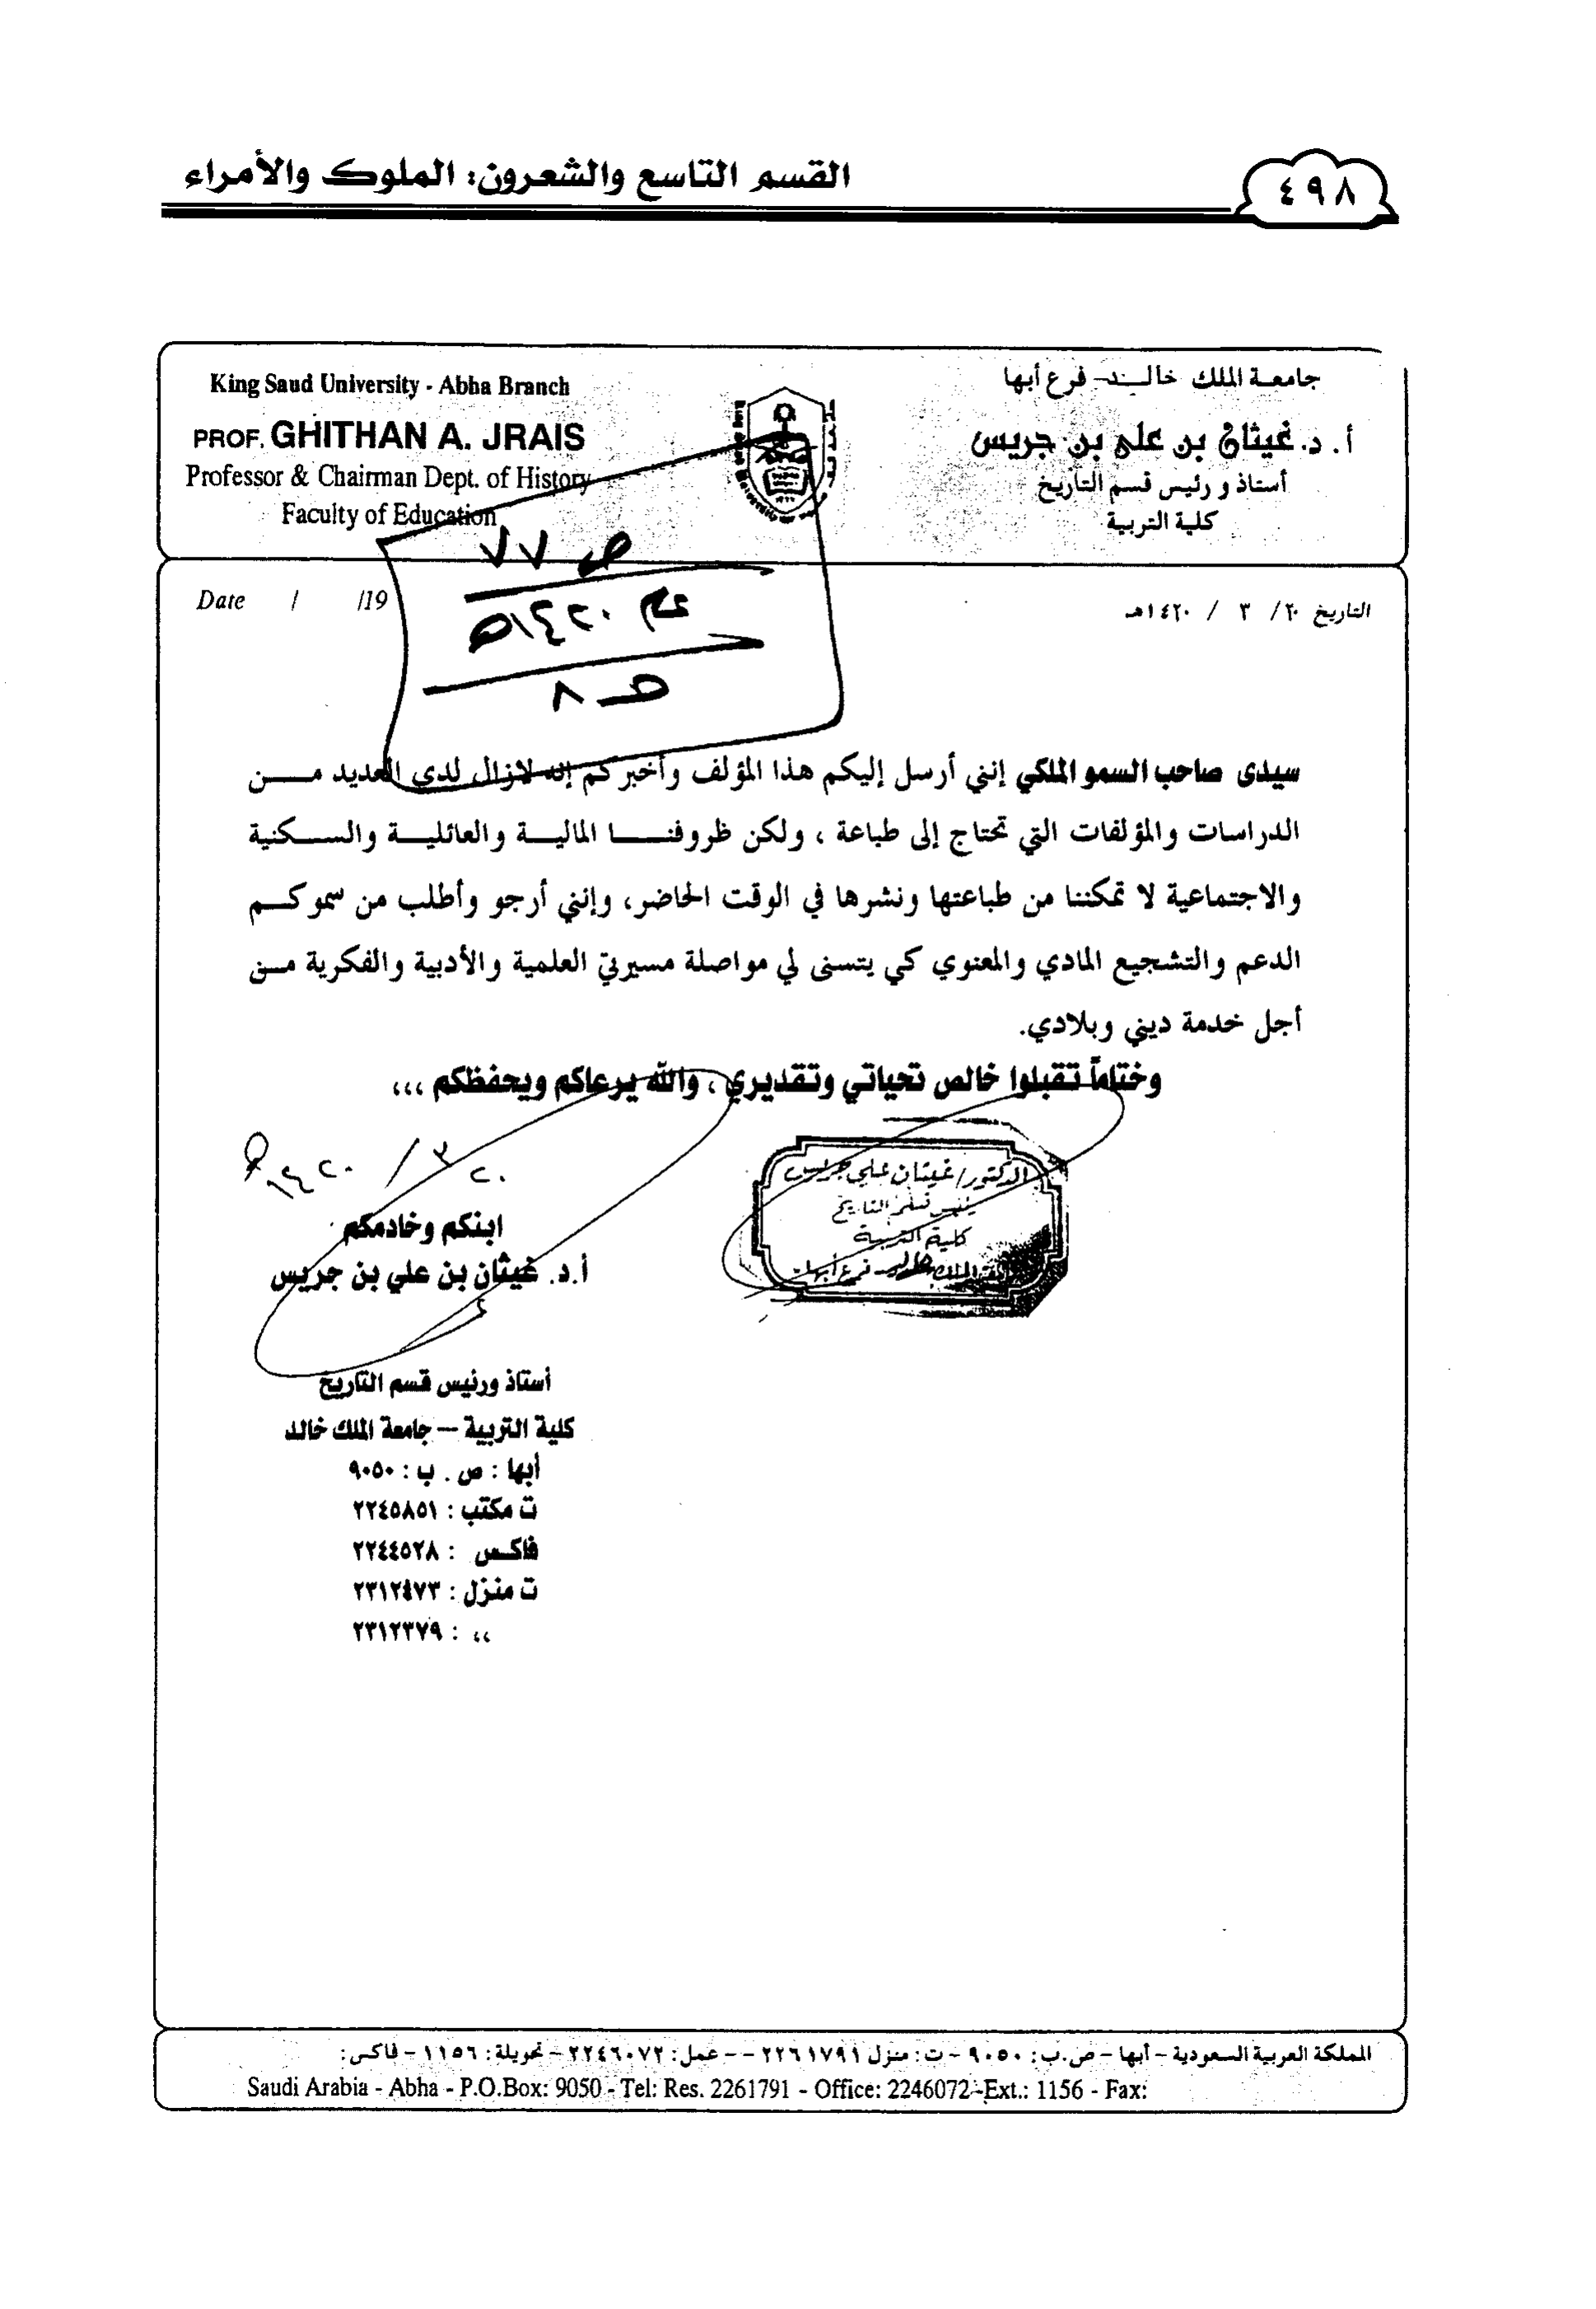 القسم التاسع والشعرون: الملوك والأمراء
٤٩٨
King Saud University - Abha Branch
PROF. GHITHAN A. JRAIS
Professor & Chairman Dept. of History
Faculty of Education
جامعة الملك خالد - فرع أبها
أ. د. غيثان بن على بن جريس
أستاذ و رئيس قسم التأريخ
كلية التربية
ص ٧٧
عم ١٤٢٠هـ
صـ ٨
Date / /19
التاريخ ٢٠/ ٣ / ١٤٢٠هـ
سيدى صاحب السمو الملكي إنني أرسل إليكم هذا المؤلف وأخبركم إنه لازال لدي العديد مــن
الدراسات والمؤلفات التي تحتاج إلى طباعة ، ولكن ظروفنــا المالية والعائلية والسكنية
والاجتماعية لا تمكننا من طباعتها ونشرها في الوقت الحاضر، وإنني أرجو وأطلب من سموكم
الدعم والتشجيع المادي والمعنوي كي يتسنى لي مواصلة مسيرتي العلمية والأدبية والفكرية مـن
أجل خدمة ديني وبلادي.
وختاماً تقبلوا خالص تحياتي وتقديري ، والله يرعاكم ويحفظكم ،،،
٢٠ / ٣ / ١٤٢٠هـ
الدكتور/ غيثان علي جريس
رئيس قسم التاريخ
كلية التربية
الملك خالد - فرع أبها
ابنكم وخادمكم
أ.د. غيثان بن علي بن جريس
أستاذ ورئيس قسم التاريخ
كلية التربية – جامعة الملك خالد
أبها : ص . ب : ٩٠٥٠
ت مكتب : ٢٢٤٥٨٥١
فاكس : ٢٢٤٤٥٢٨
ت منزل : ٢٣١٢٤٧٣
،، : ٢٣١٢٣٧٩
المملكة العربية السعودية - أبها - ص.ب: ٩٠٥٠ - ت: منزل ٢٢٦١٧٩١ - - عمل: ٢٢٤٦٠٧٢ - تحويلة: ١١٥٦ - فاكس:
Saudi Arabia - Abha - P.O.Box: 9050 - Tel: Res. 2261791 - Office: 2246072 -Ext.: 1156 - Fax: